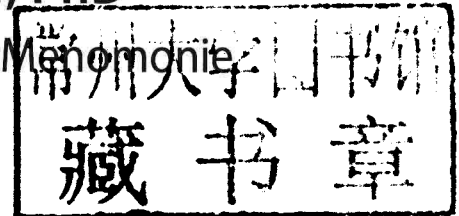 PhD
Menomonie
常州大学图书馆
藏书章